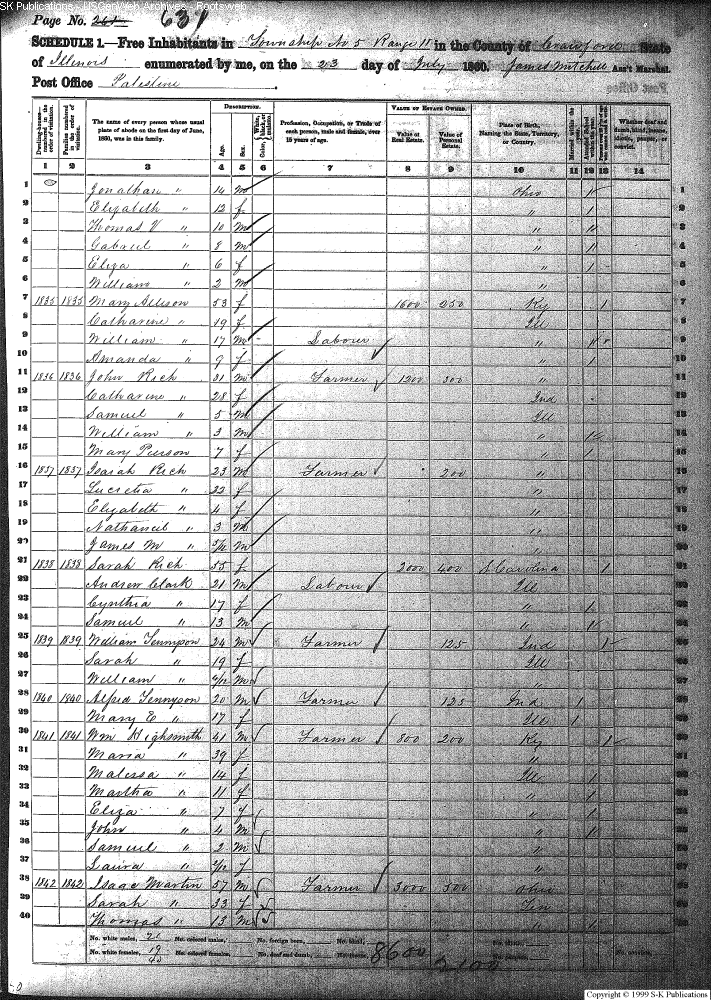 SK Publications - USGenWeb Archives - Rootsweb
Page No. 261 631
SCHEDULE 1.—Free Inhabitants in Township No 5 Range 11 in the County of Crawford State
of Illinois enumerated by me, on the 23 day of July 1860. James Mitchell Ass't Marshal.
Post Office Palestine
DESCRIPTION. VALUE OF ESTATE OWNED.
Dwelling-houses—numbered in the order of visitation. Families numbered in the order of visitation. The name of every person whose usual place of abode on the first day of June, 1860, was in this family. Age. Sex. Color, White, black, or mulatto. Profession, Occupation, or Trade of each person, male and female, over 15 years of age. Value of Real Estate. Value of Personal Estate. Place of Birth, Naming the State, Territory, or Country. Married within the year. Attended School within the year. Whether deaf and dumb, blind, insane, idiotic, pauper, or convict.
1 2 3 4 5 6 7 8 9 10 11 12 13 14
1 Jonathan " 14 m Ohio 1 1
2 Elizabeth " 12 f " 1 2
3 Thomas V " 10 m " 1 3
4 Gabriel " 8 m " 1 4
5 Eliza " 6 f " 1 5
6 William " 2 m " 6
7 1835 1835 Mary Allison 53 f 1600 250 Ky 1 7
8 Catharine " 19 f Ill 8
9 William " 17 m Labour " 1 9
10 Amanda " 9 f " 1 10
11 1836 1836 John Rich 31 m Farmer 1200 300 " 11
12 Catharine " 28 f Ind 12
13 Samuel " 5 m Ill 13
14 William " 3 m " 1 14
15 Mary Pierson 7 f " 1 15
16 1837 1837 Isaiah Rich 23 m Farmer 200 " 16
17 Lucretia " 22 f " 17
18 Elizabeth " 4 f " 18
19 Nathaniel " 3 m " 19
20 James M " 5/12 m " 20
21 1838 1838 Sarah Rich 55 f 2000 400 S Carolina 1 21
22 Andrew Clark 21 m Labour Ill 22
23 Cynthia " 17 f " 1 23
24 Samuel " 13 m " 1 24
25 1839 1839 William Tennyson 24 m Farmer 125 Ind 1 25
26 Sarah " 19 f Ill 26
27 William " m " 27
28 1840 1840 Alfred Tennyson 20 m Farmer 125 Ind 1 28
29 Mary E " 17 f Ill 1 29
30 1841 1841 Wm Highsmith 41 m Farmer 800 200 Ky 1 30
31 Maria " 39 f " 31
32 Malissa " 14 f Ill 1 32
33 Martha " 11 f " 1 33
34 Eliza " 7 f " 1 34
35 John " 4 m " 1 35
36 Samuel " 2 m " 36
37 Laura " f " 37
38 1842 1842 Isaac Martin 57 m Farmer 3000 500 Ohio 38
39 Sarah " 33 f 39
40 Thomas " 13 m 1 40
No. white males, 21 No. colored males, No. foreign born, No. blind, 8600
No. white females, 19 No. colored females, No. deaf and dumb, 2100 No. convicts,
40
Copyright © 1999 S-K Publications